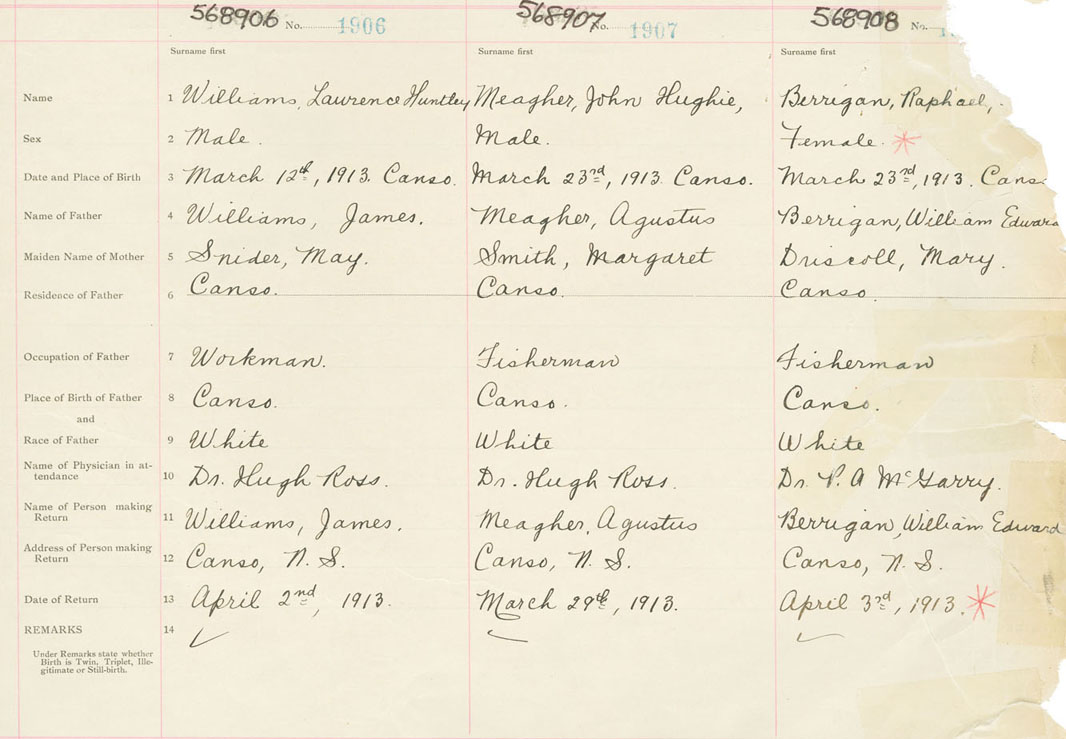 568906 No. 1906 568907 No. 1907 568908 No.
Surname first Surname first Surname first
Name 1 Williams, Lawrence Huntley Meagher, John Hughie, Berrigan, Raphael,
Sex 2 Male. Male. Female.
Date and Place of Birth 3 March 12th, 1913. Canso. March 23rd, 1913. Canso. March 23rd, 1913. Canso
Name of Father 4 Williams, James. Meagher, Agustus Berrigan, William Edward
Maiden Name of Mother 5 Snider, May. Smith, Margaret Driscoll, Mary.
Residence of Father 6 Canso. Canso. Canso.
Occupation of Father 7 Workman. Fisherman Fisherman
Place of Birth of Father 8 Canso. Canso. Canso.
and
Race of Father 9 White White White
Name of Physician in at-
tendance 10 Dr. Hugh Ross. Dr. Hugh Ross. Dr. P. A McGarry.
Name of Person making
Return 11 Williams, James. Meagher, Agustus Berrigan, William Edward
Address of Person making
Return 12 Canso, N. S. Canso, N. S. Canso, N. S.
Date of Return 13 April 2nd, 1913. March 29th, 1913. April 3rd, 1913.
REMARKS 14
Under Remarks state whether
Birth is Twin, Triplet, Ille-
gitimate or Still-birth.